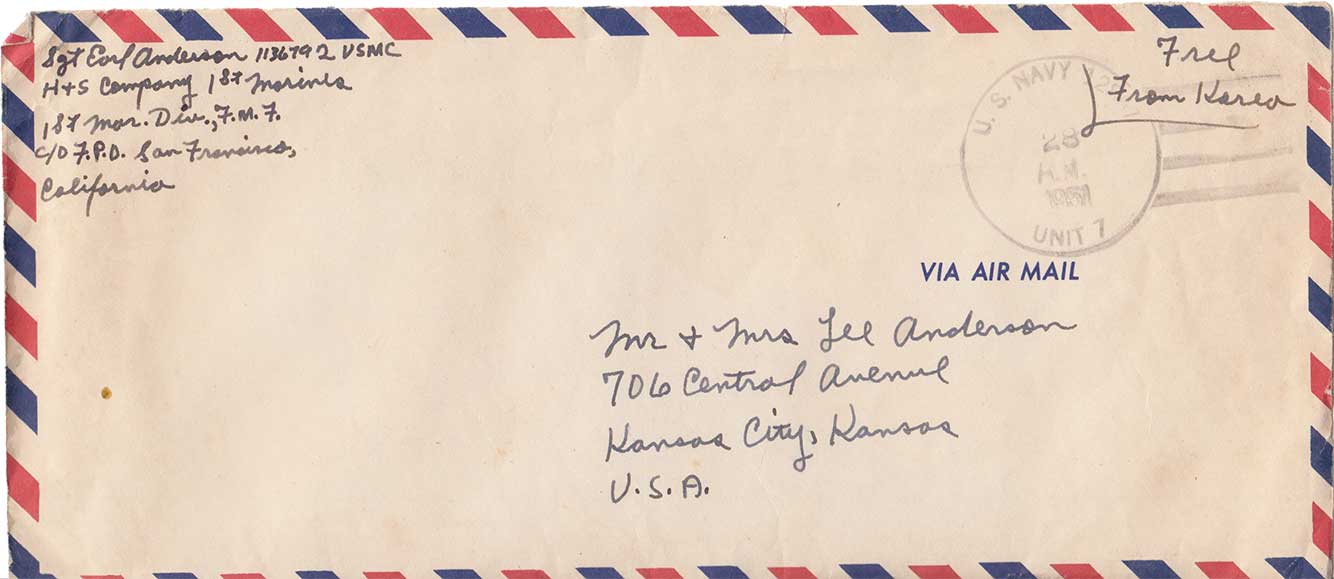 Sgt Earl Anderson 1136792 USMC
H+S Company 1st Marines
1st Mar. Div., F.M.F.
c/o F.P.O. San Francisco,
California
Free
From Korea
U. S. NAVY
28
A.M.
1951
UNIT 7
VIA AIR MAIL
Mr + Mrs Lee Anderson
706 Central Avenue
Kansas City, Kansas
U.S.A.